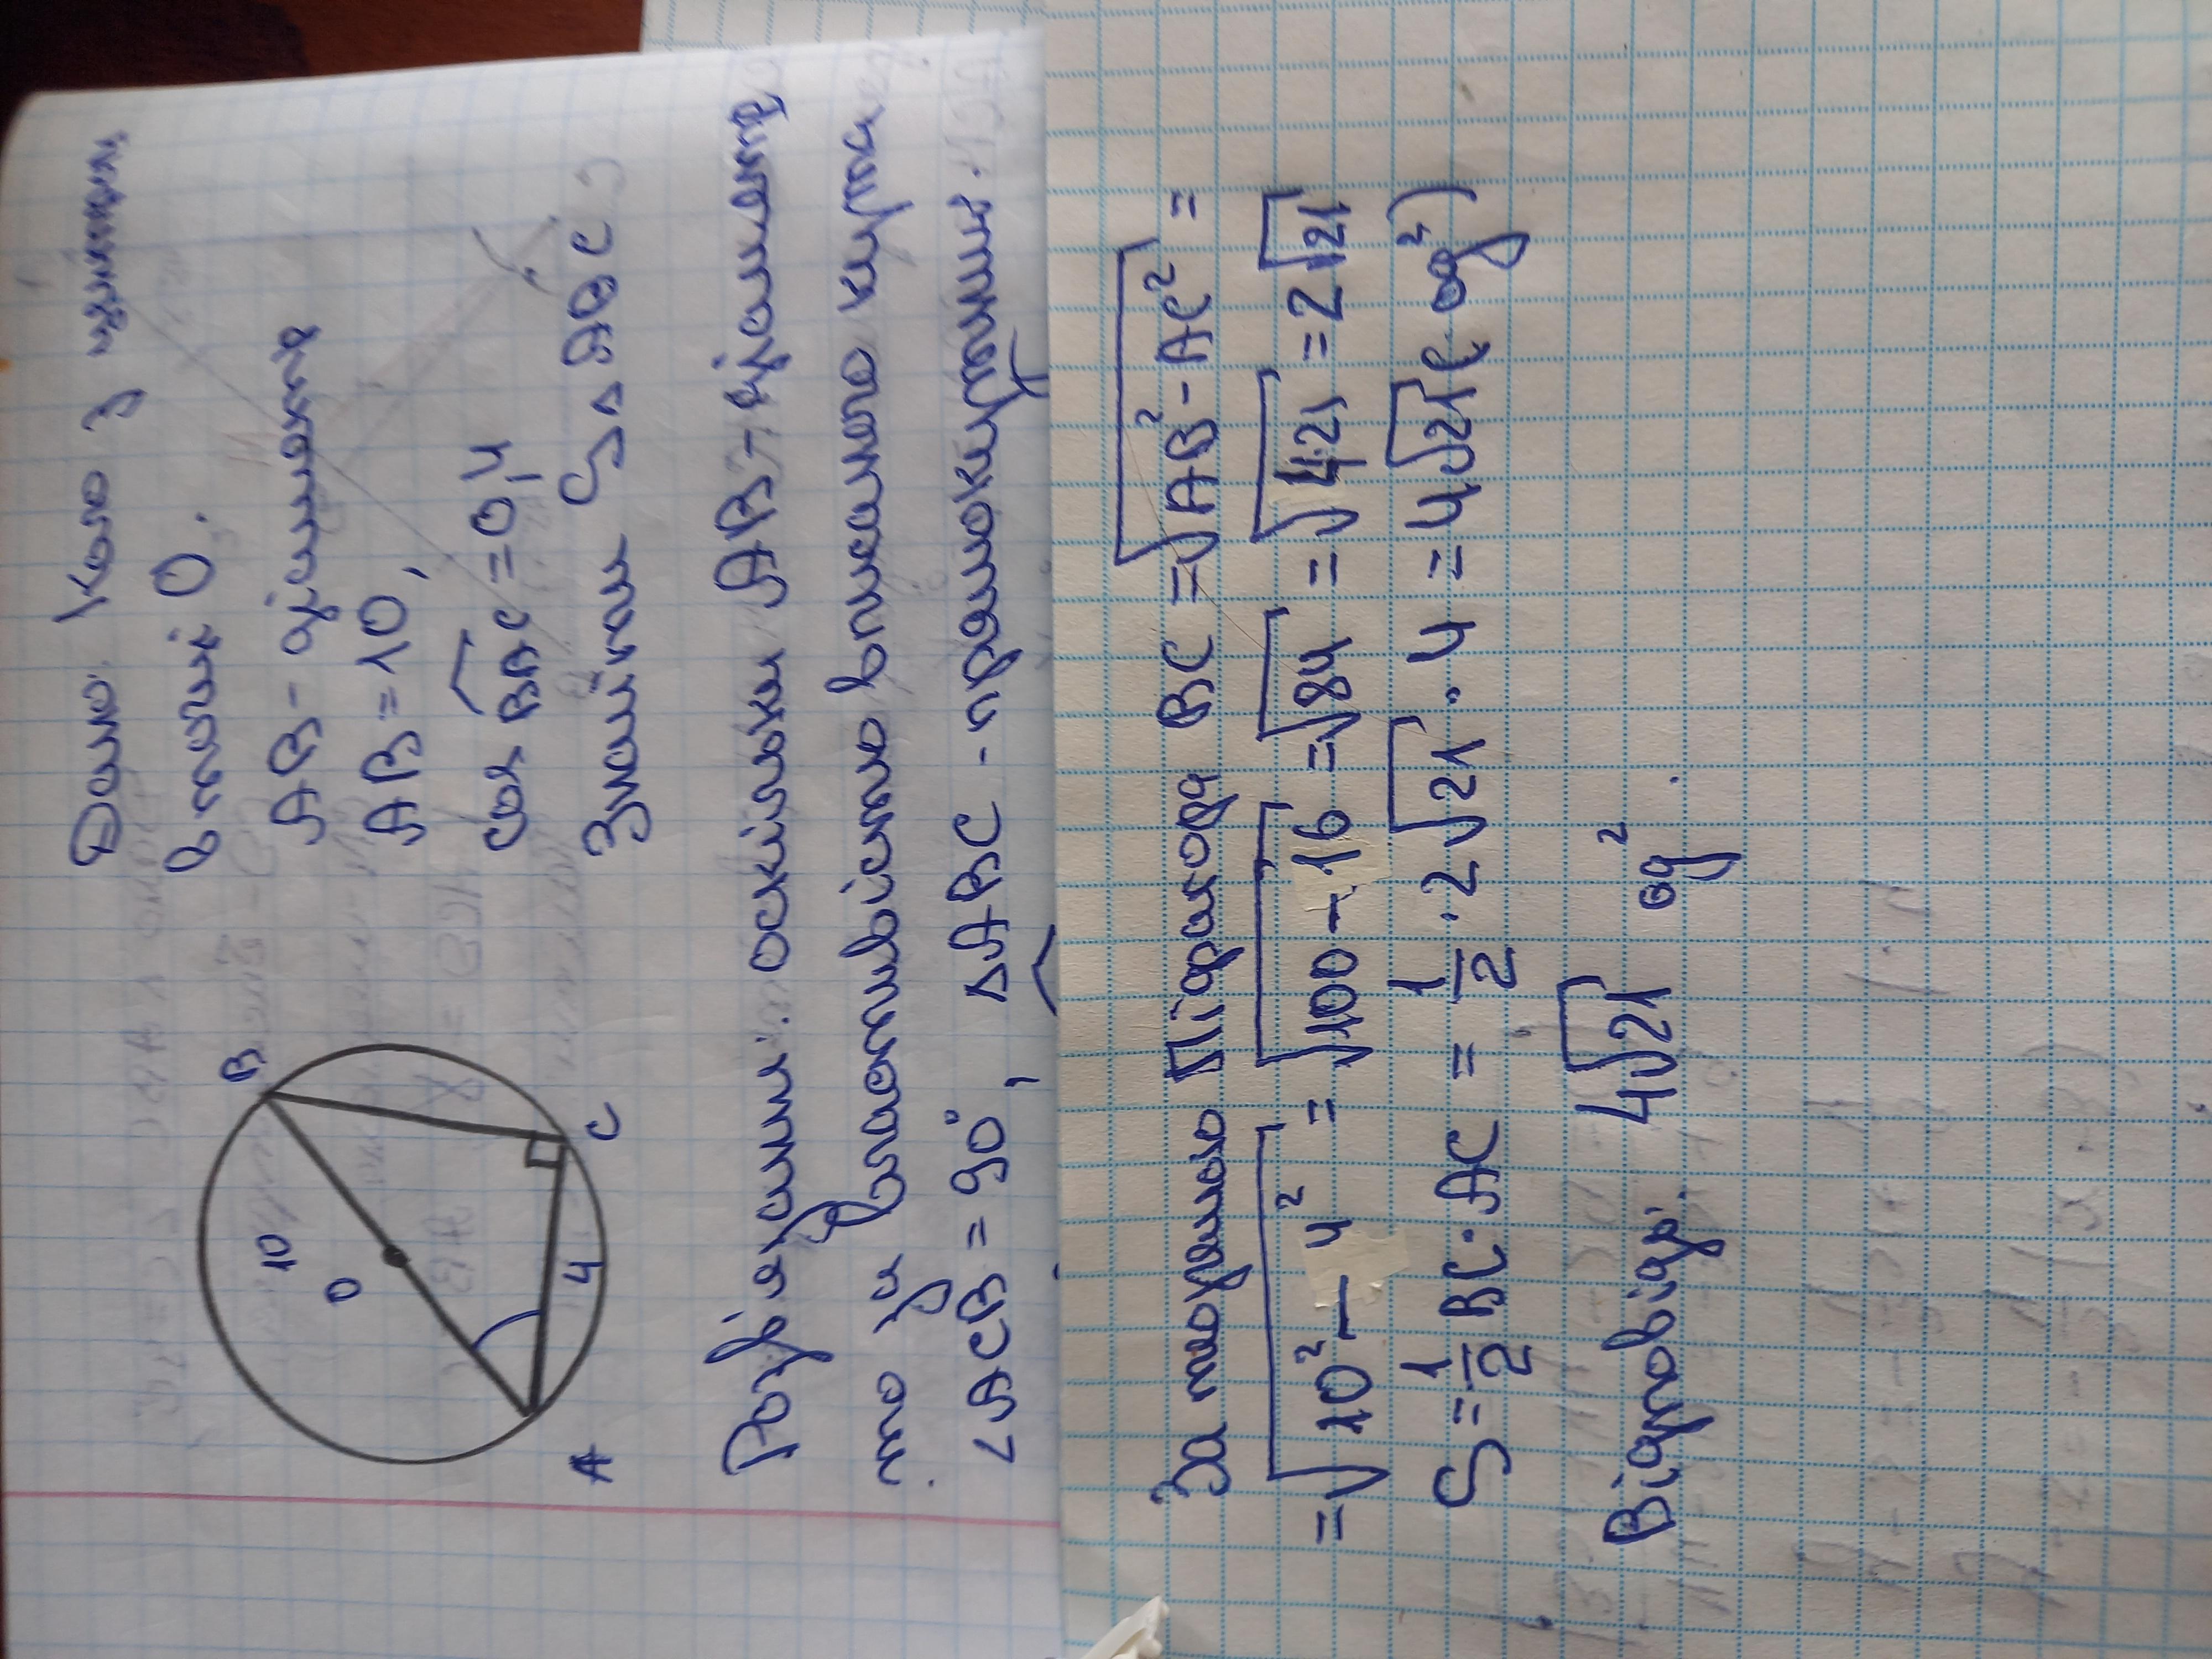 Дано: Коло з центром
в точці О.
АВ - діаметр
АВ = 10,
cos BAC = 0,4
Знайти S△ABC
B
10
O
4
A
C
Розв'язання: оскільки АВ - діаметр
то за властивістю вписаного кута
∠ACB = 90°, △ABC - прямокутний.
За теоремою Піфагора BC = √AB² - AC² =
= √10² - 4² = √100 - 16 = √84 = √4·21 = 2√21
S = 1/2 BC · AC = 1/2 · 2√21 · 4 = 4√21 (од²)
Відповідь: 4√21 од².